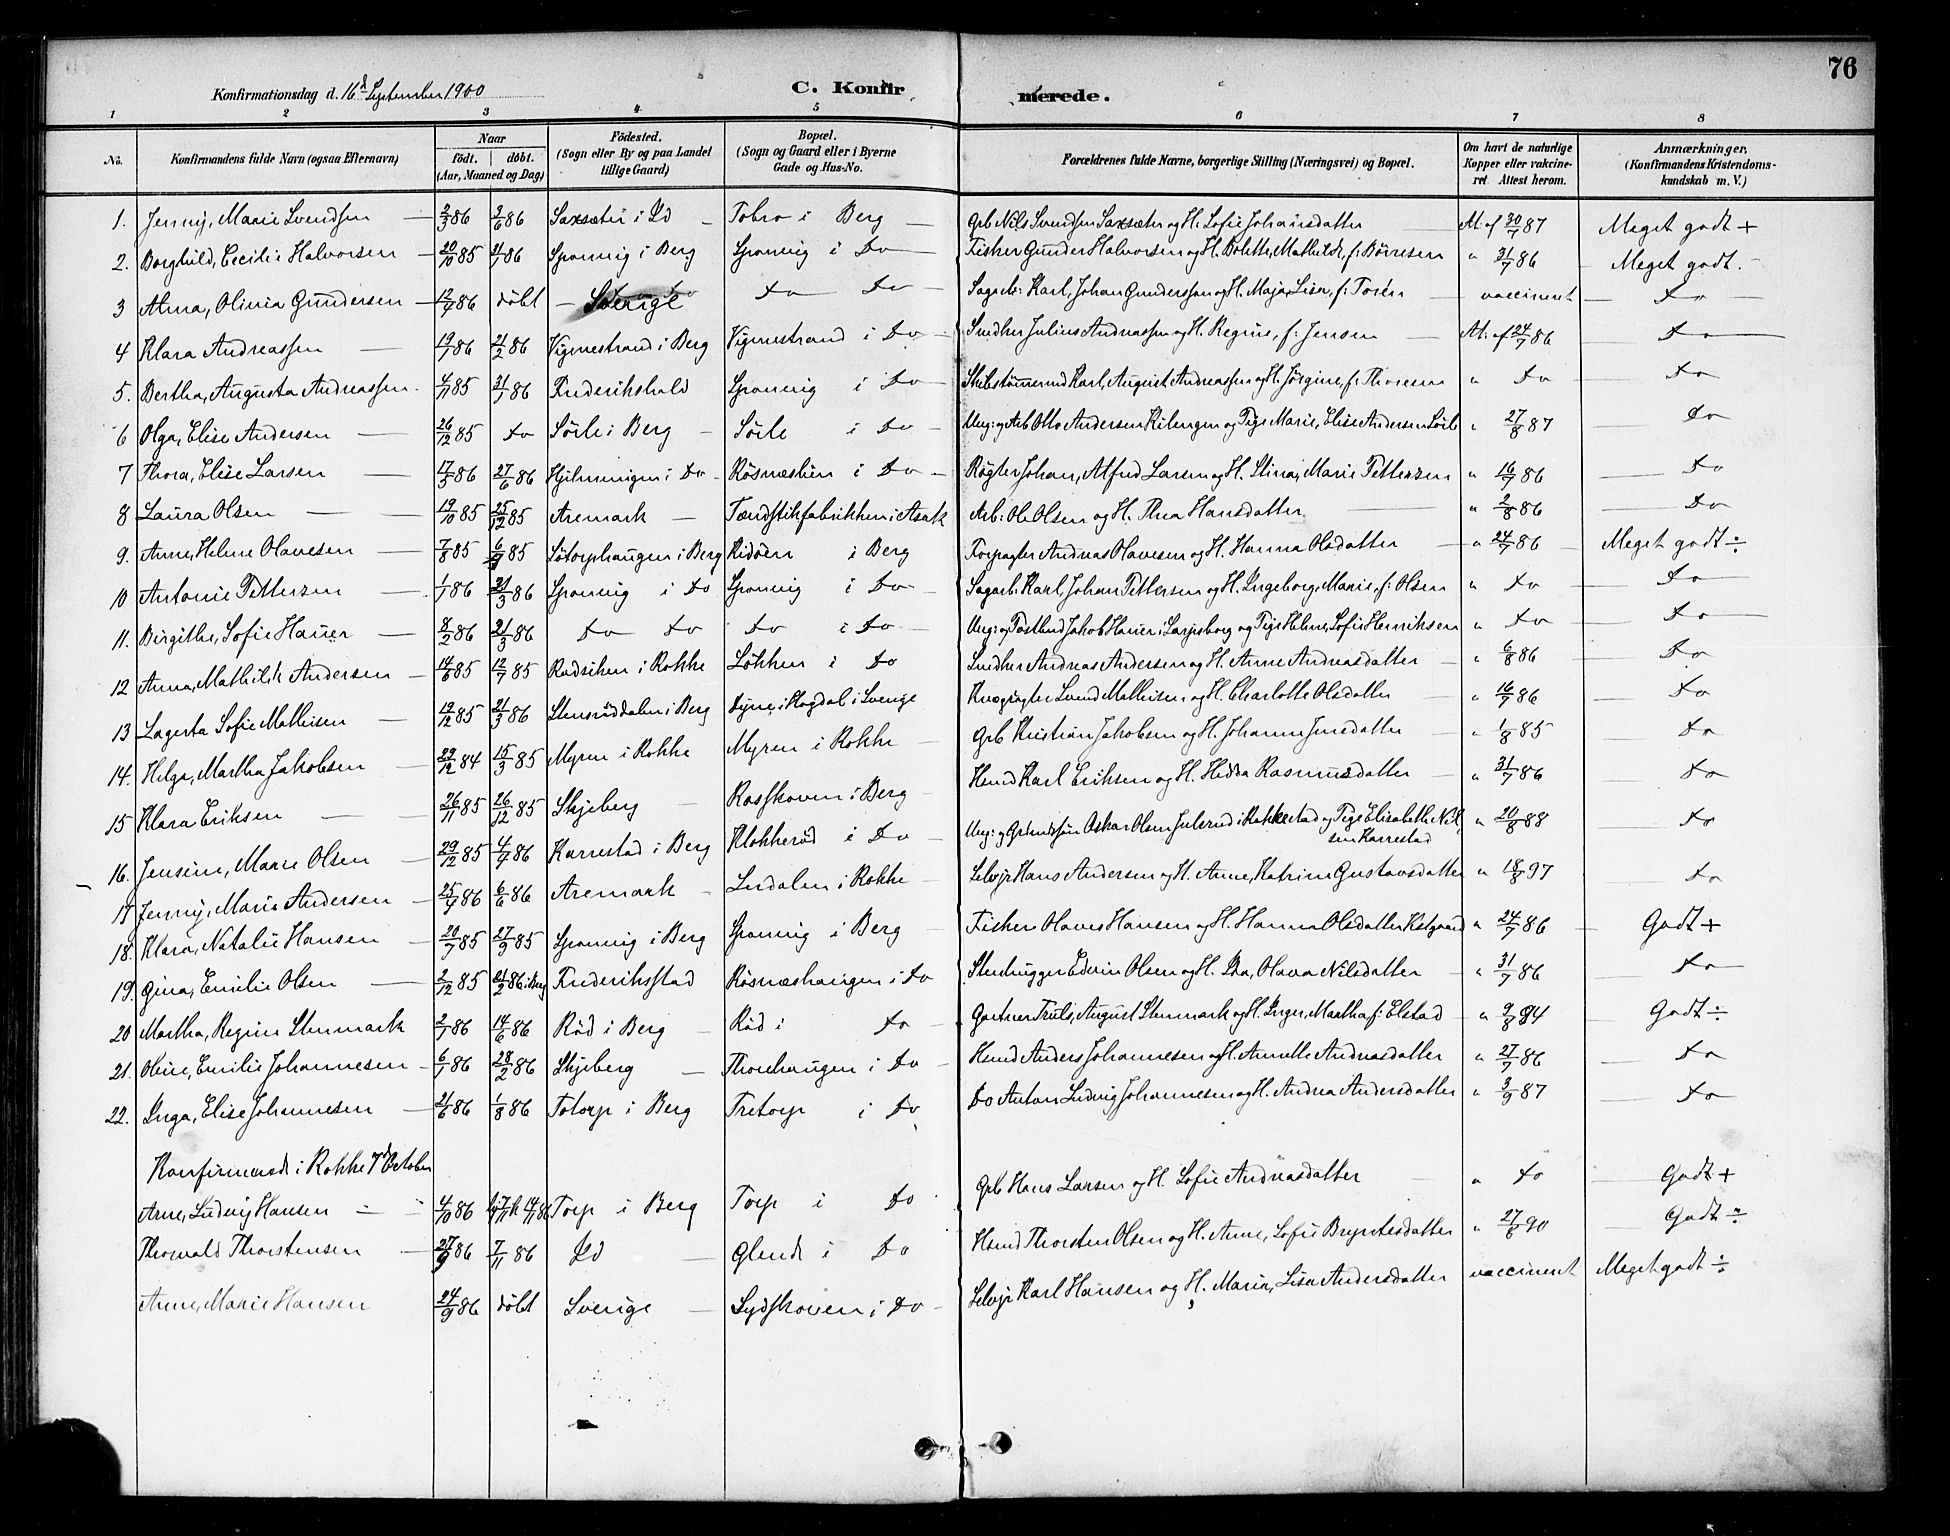 76
Konfirmationsdag d. 16d September 1900 C. Konfirmerede.
1 2 3 4 5 6 7 8
No. Konfirmandens fulde Navn (ogsaa Efternavn) Naar født. døbt. (Aar, Maaned og Dag) Fødested. (Sogn eller By og paa Landet tillige Gaard) Bopæl. (Sogn og Gaard eller i Byerne Gade og Hus-No. Forældrenes fulde Navne, borgerlige Stilling (Næringsvei) og Bopæl. Om havt de naturlige Kopper eller vakcineret Attest herom. Anmærkninger, (Konfirmandens Kristendomskundskab m. V.)
1. Jenny, Marie Svendsen 2/3 86 2/6 86 Saxsæter i Id Tobro i Berg Grb Nils Svendsen Saxsæter og H. Sofie Johansdatter At. af 30/7 87 Meget godt +
2. Borghild, Cecilie Halvorsen 20/10 85 4/7 86 Sponvig i Berg Sponvig i Do Fisker Gunder Halvorsen og H. Bolette, Mathilde, f: Børresen " 31/7 86 Meget godt.
3 Alma, Olivia Gundersen 12/7 86 døbt Sverige Do Do Sagarb: Karl, Johan Gunderssen og H. Maja, Lisa, f: Torén vaccineret Do
4 Klara Andreassen 19/1 86 21/2 86 Vigmestrand i Berg Vigmestrand i Do Snedker Julius Andreassen og H. Regine, f: Jensen At: af 24/7 86 Do
5. Bertha, Augusta Andreassen 4/11 85 31/7 86 Frederikshald Sponvig i Do Skibstømmermd Karl, August Andreassen og H. Jørgine, f: Thoresen " Do Do
6 Olga, Elise Andersen 26/12 85 Do Sørle i Berg Sørle i Do Ung: og Arb Otto Andersen Kilengen og Pige Marie, Elise Andersen Sørle " 27/8 87 Do
7 Thora, Elise Larsen 17/3 86 27/6 86 Hjelmungen i Do Røsnæslien i Do Røgter Johan, Alfred Larsen og H. Stina, Marie Pettersen " 16/7 86 Do
8 Laura Olsen 19/10 85 25/12 85 Aremark Tændstikfabrikken i Asak Arb: Ole Olsen og H. Thea Hansdatter " 2/8 86 Do
9. Anne, Helene Olavesen 7/8 85 6/9 85 Sötorphaugen i Berg Ridøen i Berg Forpagter Andreas Olavesen og H. Hanna Olsdatter " 24/7 86 Meget godt ÷
10 Antonie Pettersen 1/1 86 21/3 86 Sponvig i Do Sponvig i Do Sagarb: Karl Johan Pettersen og H. Ingeborg, Marie, f: Olsen " Do Do
11. Birgithe, Sofie Hauer 8/2 86 21/3 86 Do Do Do i Do Ung: og Postbud Jakob Hauer i Sarpsborg og Pige Helene, Sofie Henriksen " Do Do
12 Anna, Mathilde Andersen 14/6 85 12/7 85 Rødsiken i Rokke Løkken i Do Snedker Andreas Andersen og H. Anne Andreasdatter " 6/8 86 Do
13 Lagerta Sofie Mathisen 19/12 85 21/3 86 Stensröddalen i Berg Dyne i Rogdal i Sverige Kvægrøgter Svend Mathisen og H. Charlotte Olsdatter " 16/7 86 Do
14. Helga, Martha Jakobsen 22/12 84 15/3 85 Myren i Rokke Myren i Rokke Grb Kristian Jakobsen og H. Johanne Jensdatter " 1/8 85 Do
15 Klara Eriksen 26/11 85 26/12 85 Skjeberg Rosskoven i Berg Husmd Karl Eriksen og H. Hedda Rasmusdatter " 31/7 86 Do
16. Jensine, Marie Olsen 29/12 85 4/7 86 Karrestad i Berg Klokkerød i Do Ung: og Grbmdssøn Oskar Olsen Julsrud i Rakkestad og Pige Elisabeth Nilsen Karrestad " 20/8 88 Do
17 Jenny, Marie Andersen 25/4 86 6/6 86 Aremark Lerdalen i Rokke Selvejr Hans Andersen og H. Anne, Katrine Gustavsdatter " 18/8 97 Do
18. Klara, Natalie Hansen 20/7 85 27/9 85 Sponvig i Berg Sponvig i Berg Fisker Olaves Hansen og H. Hanna Olsdatter " 24/7 86 Godt +
19. Gina, Emilie Olsen 2/12 85 21/2 86 i Berg Frederiksstad Røsnæshaugen i Do Stenhugger Edvin Olsen og H. Ida, Olava Nilsdatter " 31/7 86 Do
20 Martha, Regine Stenmark 2/1 86 14/6 86 Rød i Berg Rød i Do Gartner Truls, August Stenmark og H. Inger, Martha f: Elstad " 9/8 94 Godt ÷
21. Oline, Emilie Johannesen 6/1 86 28/2 86 Skjeberg Thonehaugen i Do Husmd Anders Johannesen og H. Anette Andreasdatter " 27/7 86 Do
22. Inga, Elise Johannesen 21/6 86 1/8 86 Totorp i Berg Tretorp i Do Do Anton Ludvig Johannesen og H. Andrea Andersdatter " 3/9 87 Do
Konfirmerede i Rokke 7d October
Arne, Ludvig Hansen 4/10 86 14/11 86 Torp i Berg Torp i Do Grb Hans Larsen og H. Sofie Andreasdatter " Do Godt +
Thorvald Thorstensen 27/9 86 7/11 86 Id Glende i Do Husmd Thorsten Olsen og H. Anne, Sofie Bryntesdatter " 27/6 90 Godt ÷
Anne, Marie Hansen 24/9 86 døbt Sverige Sydskoven i Do Selvejr Karl Hansen og H. Maria, Lisa Andersdatter vaccineret Meget godt ÷